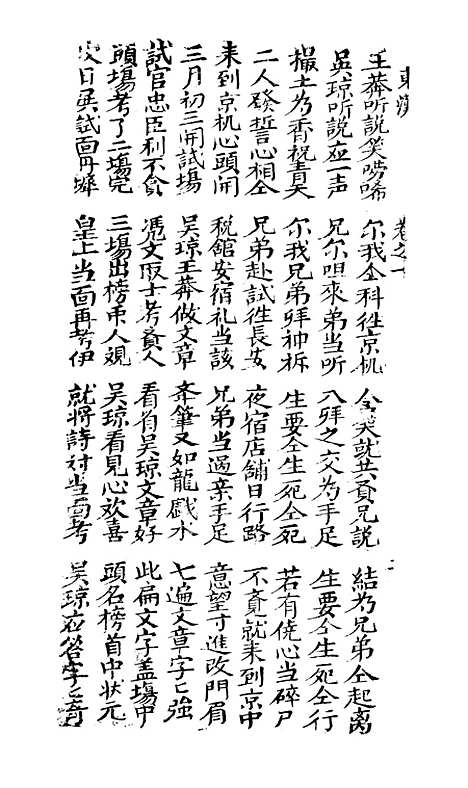 東漢 卷之十 二
王莽听說笑嘮唏 尔我仝科徃京机 今天就共賁兄說 結为兄弟仝起离
吳琼听說应一声 兄尔呾來弟当听 八拜之交为手足 生要仝生死仝行
撮土为香祝青天 尔我兄弟拜神祈 生要仝生死仝死 若有僥心当碎尸
二人發誓心相仝 兄弟赴試徃長安 夜宿店舖日行路 不覚就来到京中
来到京机心頭開 税舘安宿礼当該 兄弟当過亲手足 意望寸進改門眉
三月初三開試場 吳琼王莽做文章 夆筆又如龍戯水 七遍文章字〻強
試官忠臣利不貪 馮文取士考賁人 看有吳琼文章好 此扁文字盖場中
頭場考了二場完 三場出榜乑人覌 吳琼看見心欢喜 頭名榜首中状元
日吳試面丹墀 皇上当面再考伊 就将詩对当面考 吳琼应答字〻奇